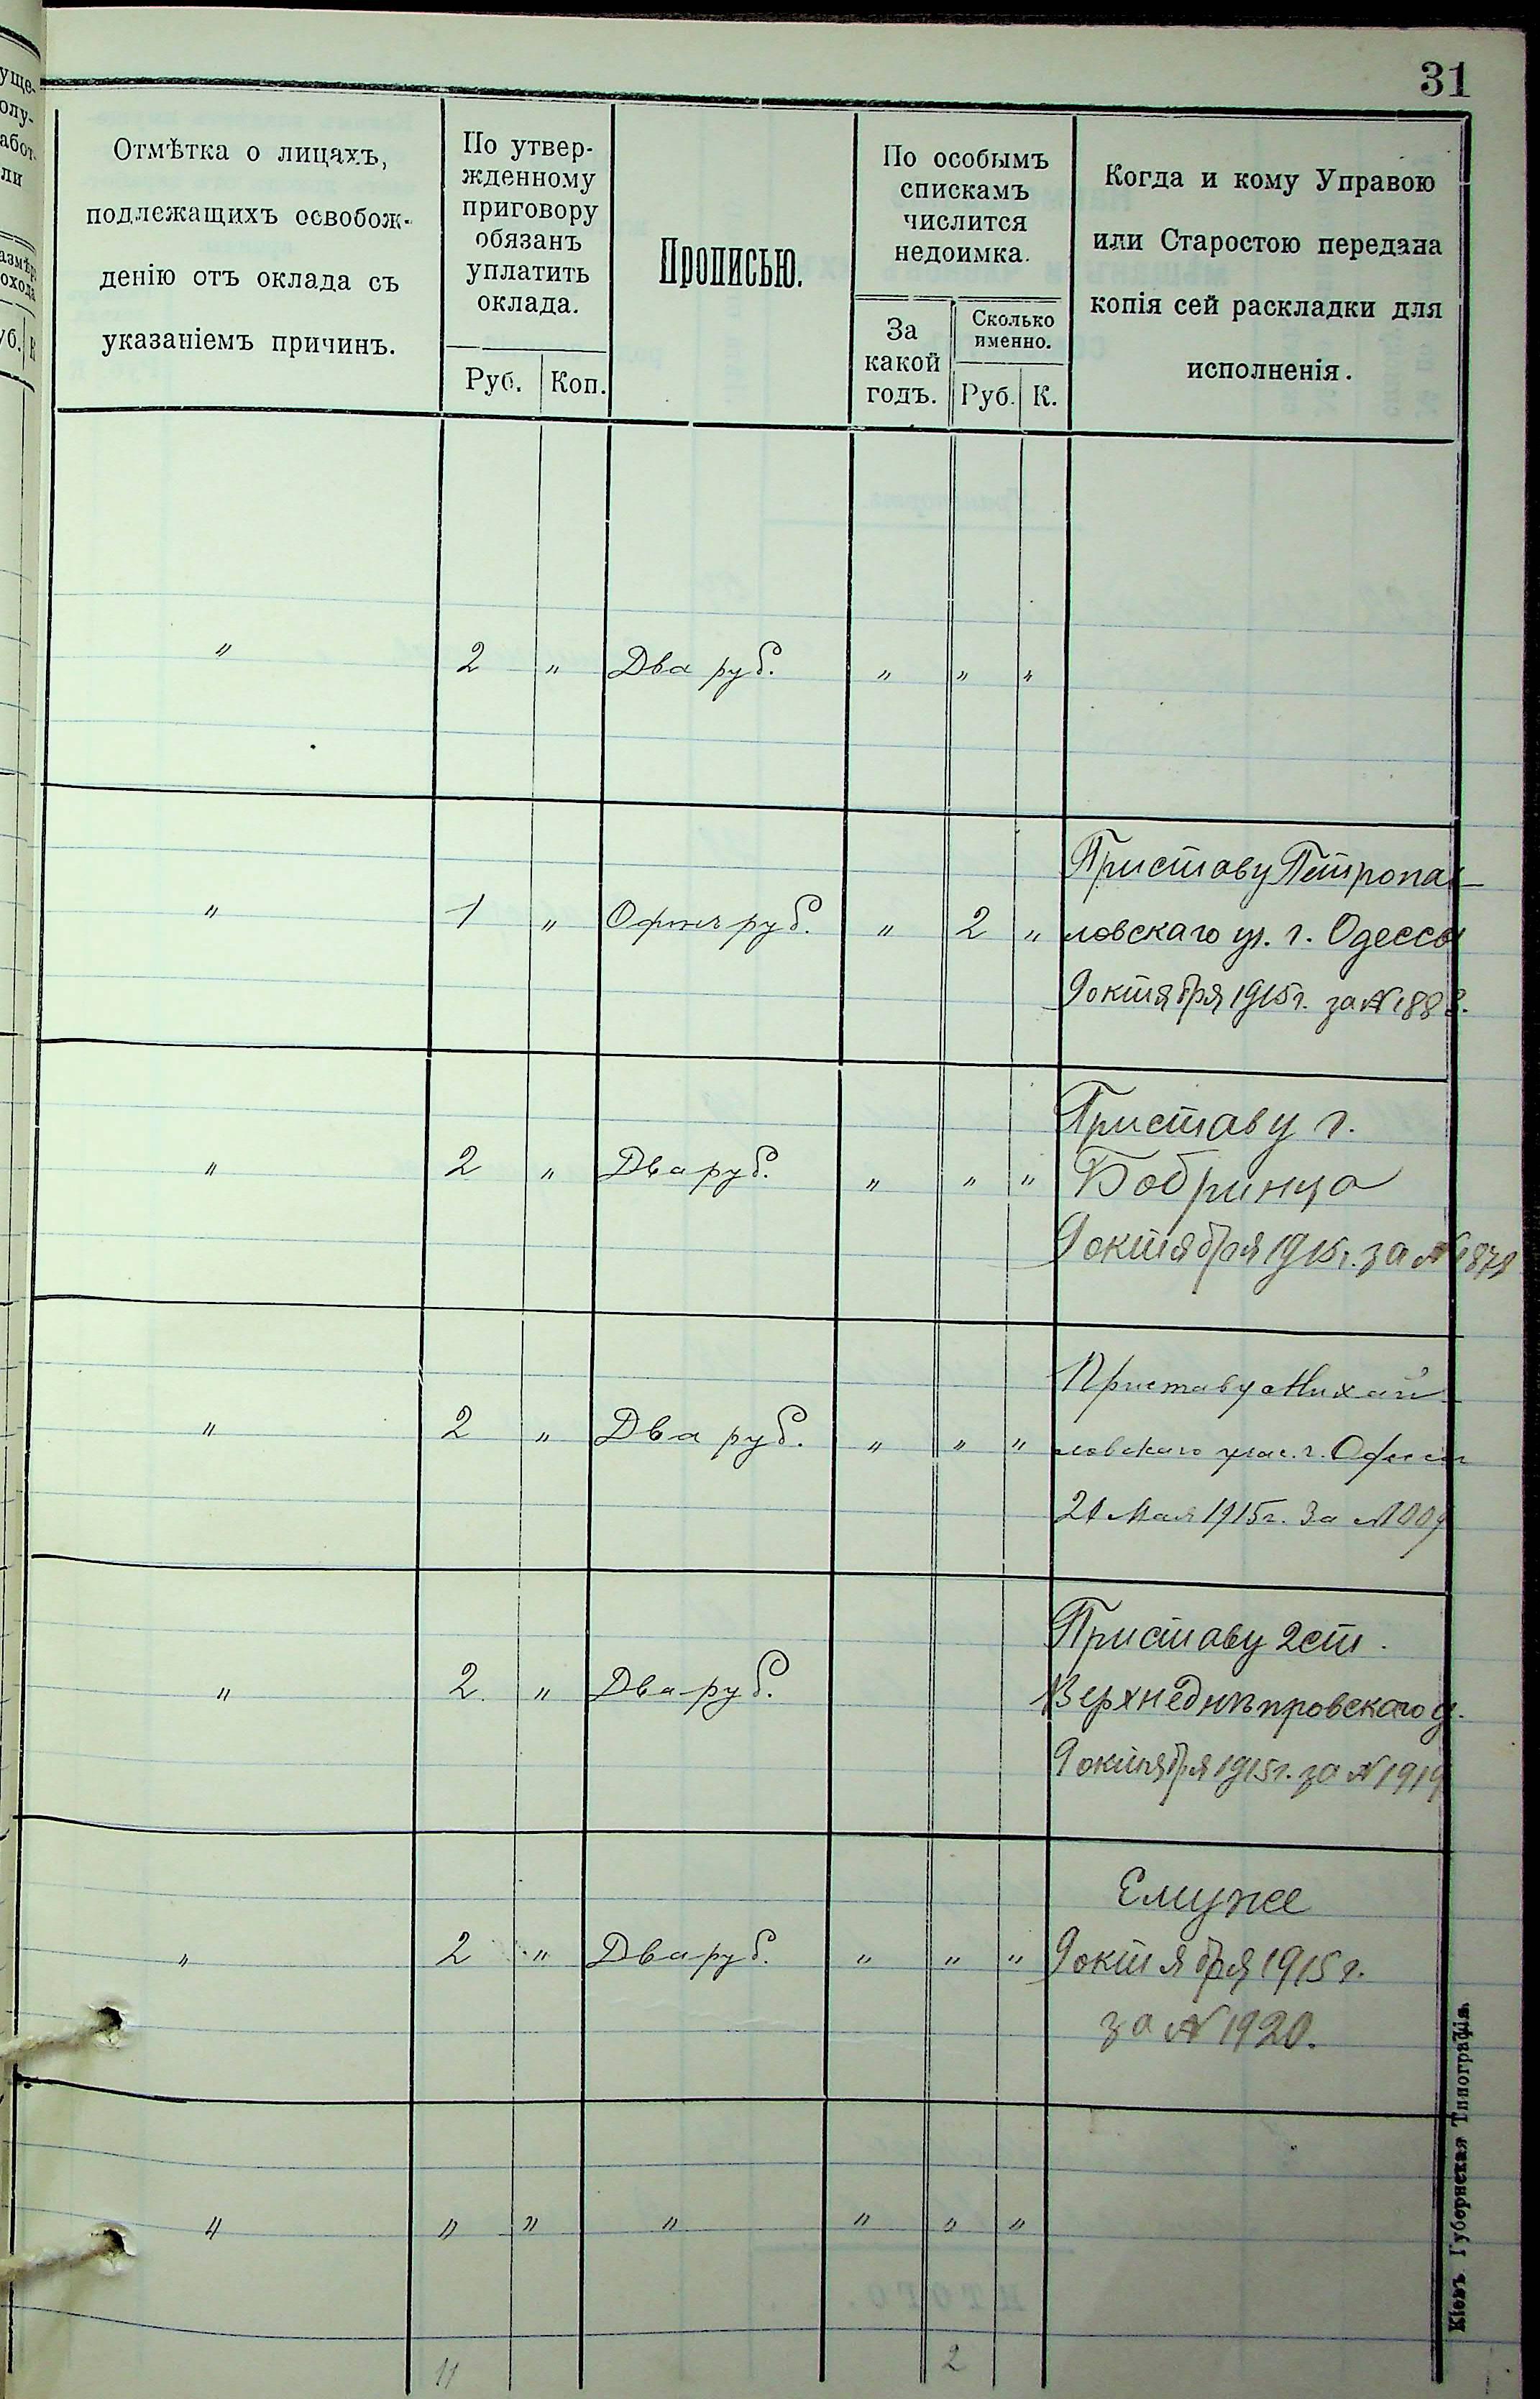 31
Отмѣтка о лицахъ,
подлежащихъ освобож-
денію отъ оклада съ
указаніемъ причинъ.
По утвер-
жденному
приговору
обязанъ
уплатить
оклада.
Руб. Коп.
Прописью.
По особымъ
спискамъ
числится
недоимка.
За
какой
годъ.
Сколько
именно.
Руб. К.
Когда и кому Управою
или Старостою передана
копія сей раскладки для
исполненія.
" 2 " Два руб. " " "
" 1 " Одинъ руб. " 2 "
Приставу Петропав-
ловскаго уч. г. Одессы
9 октября 1915 г. за № 1883.
" 2 " Два руб. " " "
Приставу г.
Бобринца
9 октября 1915 г. за № 1878
" 2 " Два руб. " " "
Приставу Михай-
ловскаго учас. г. Одессы
21 Мая 1915 г. За №
" 2 " Два руб.
Приставу 2 ст.
Верхнеднѣпровскаго у.
9 октября 1915 г. за № 1919
" 2 " Два руб. " " "
Ему же
9 октября 1915 г.
за № 1920.
" " " " " " "
11 2
Кіевъ. Губернская Типографія.